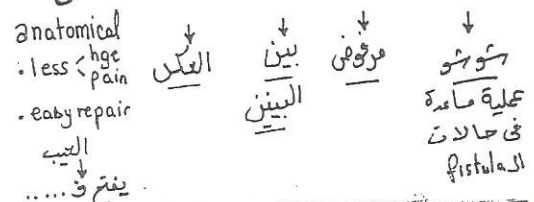 anatomical
. less < hge
pain
. easy repair
العيب
يفتح ف .....
العكس
بين
البينين
مرفوض
شوشو
عملية مساعدة
فى حالات
الـ fistula